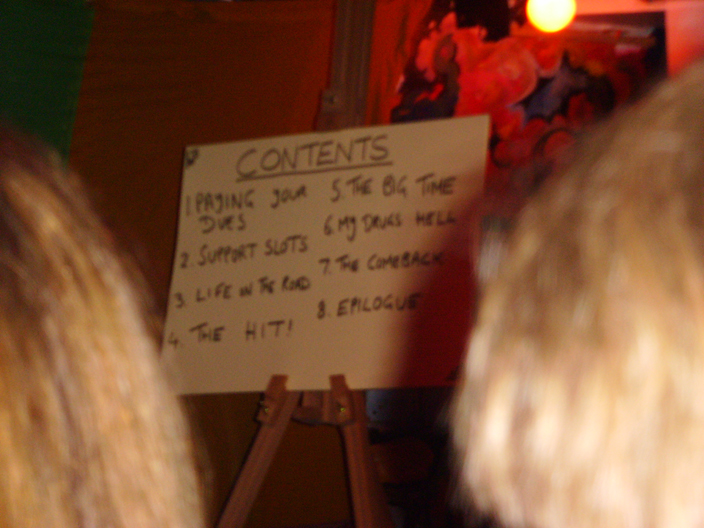 CONTENTS
1. PAYING YOUR
DUES
2. SUPPORT SLOTS
3. LIFE ON THE ROAD
4. THE HIT!
5. THE BIG TIME
6. MY DRUGS HELL
7. THE COMEBACK
8. EPILOGUE